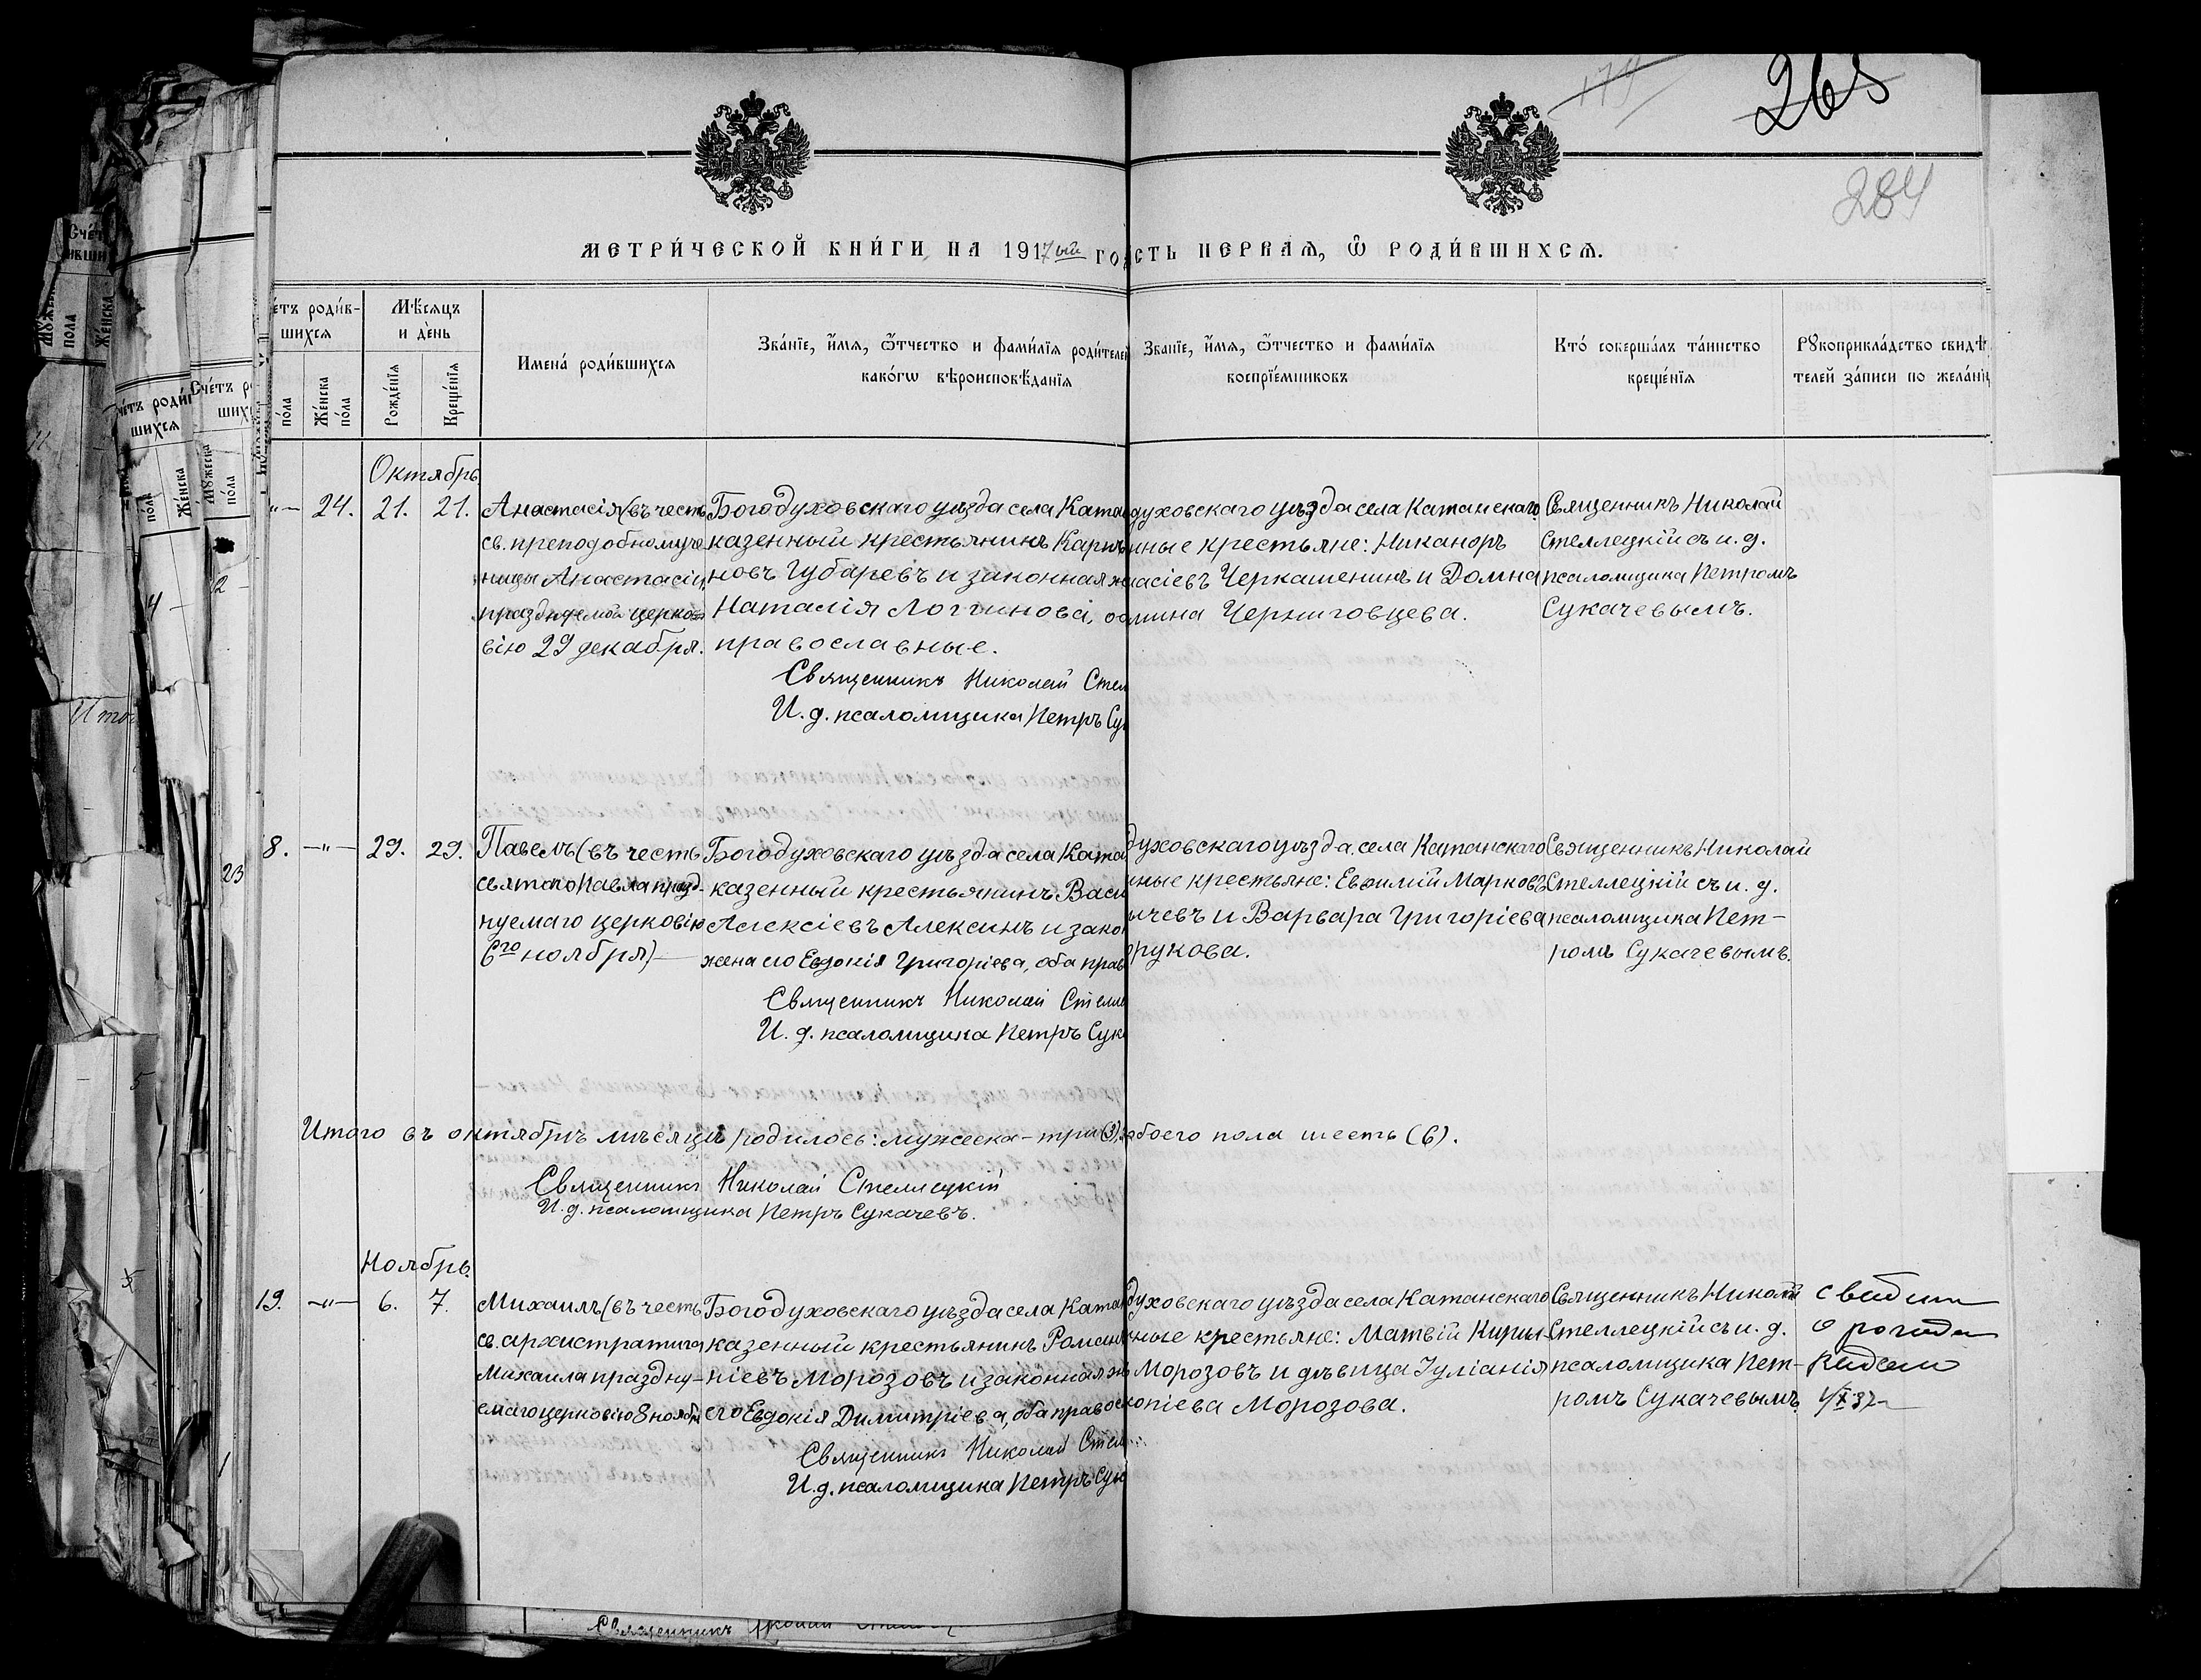 179
268
284
МЕТРИ́ЧЕСКОЙ КНИ́ГИ НА 1917ый ГО
СТЬ ПЕРВАѦ, Ѿ РОДИ́ВШИХСѦ.
е́тъ роди́в-
шихсѧ
по́ла
Же́нска по́ла
Мѣ́сяцъ
и де́нь
Рожде́нїѧ
Креще́нїѧ
Имена́ роди́вшихсѧ
Зва́нїе, и҆́мѧ, ѻ҆́тчество и фами́лїѧ роди́телей
како́гѡ вѣроисповѣ́данїѧ
Зва́нїе, и҆́мѧ, ѻ҆́тчество и фами́лїѧ
воспрїе́мниковъ
Кто́ соверша́лъ та́инство
креще́нїѧ
Рꙋкоприкла́дство свидѣ́
телей за́писи по жела́нїю
Октябрь.
-"- 24. 21. 21.
Анастасія (въ честь
св. преподобномуче
ницы Анастасіи,
празднуемой церко-
вію 29 декабря.
Богодуховскаго уѣзда села Ката
казенный крестьянинъ Карпъ
новъ Губаревъ и законная ж
Наталія Логгинова, о
православные.
Священникъ Николай Стел
И. д. псаломщика Петръ Су
духовскаго уѣзда села Катанскаго
нные крестьяне: Никаноръ
насіевъ Черкашенинъ и Домна
мина Черниговцева.
Священникъ Николай
Стеллецкій съ и. д.
псаломщика Петромъ
Сукачевымъ.
8. -"- 29. 29.
Павелъ (въ честь
святого Павла празд-
нуемаго церковію
6го ноября)
Богодуховскаго уѣзда села Ката
казенный крестьянинъ Васи
Алексіевъ Алексинъ и зако
жена его Евдокія Григоріева, оба прав
Священникъ Николай Стелле
И. д. псаломщика Петръ Сук
духовскаго уѣзда села Катанскаго
нные крестьяне: Евѳимій Марковъ
ычевъ и Варвара Григоріева
рукова.
Священникъ Николай
Стеллецкій съ и. д.
псаломщика Пет-
ромъ Сукачевымъ.
Итого въ октябрѣ мѣсяцѣ родилось: мужеска - три (3),
обоего пола шесть (6).
Священникъ Николай Стеллецкій
И. д. псаломщика Петръ Сукачевъ.
Ноябрь.
19. -"- 6. 7.
Михаилъ (въ честь
св. архистратига
Михаила праздну-
емаго церковію 8 ноября
Богодуховскаго уѣзда села Ката
казенный крестьянинъ Роман
ніевъ Морозовъ и законная ж
его Евдокія Димитріева, оба правос
Священникъ Николай Стел
И. д. псаломщика Петръ Сук
духовскаго уѣзда села Катанскаго
нные крестьяне: Матвій Кирил
Морозовъ и дѣвица Іуліанія
копіева Морозова.
Священникъ Николай
Стеллецкій съ и. д.
псаломщика Пет-
ромъ Сукачевымъ.
Священникъ
23
Итого